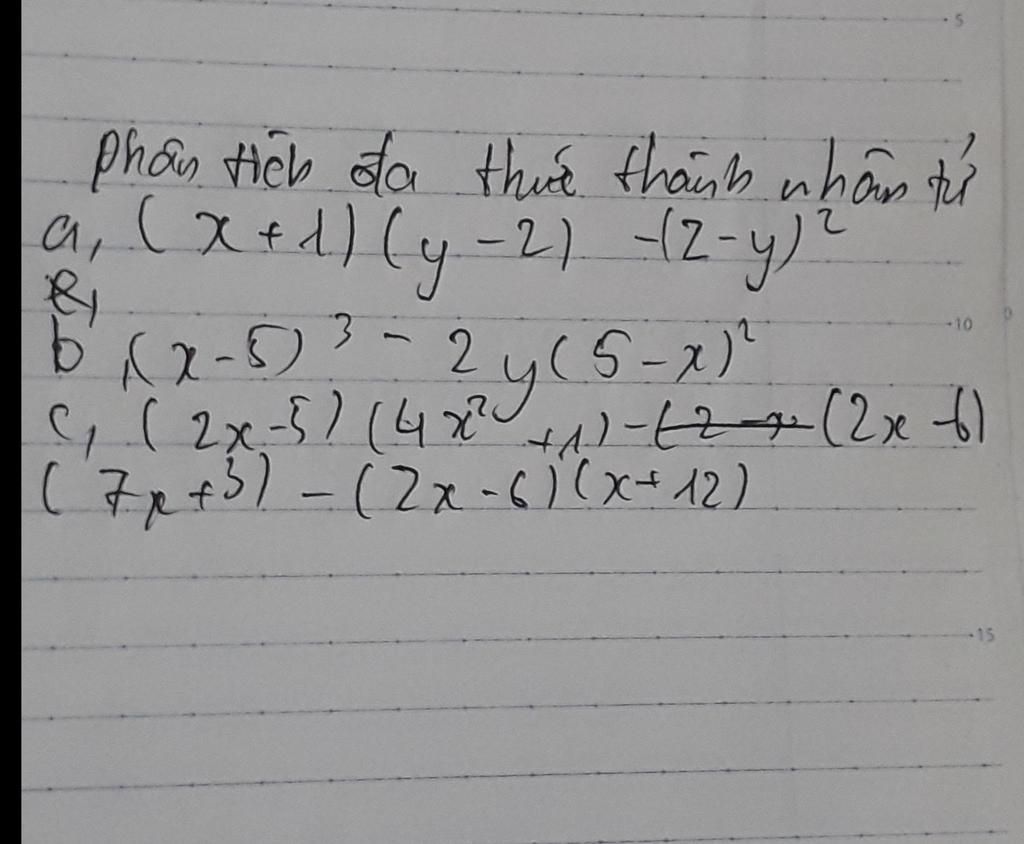 5
phân tích đa thức thành nhân tử
a, (x+1)(y-2) -(2-y)²
e,
10
b, (x-5)³ - 2y(5-x)²
c, (2x-5)(4x²+1)-(2x-6)
(7x+3) - (2x-6)(x+12)
15